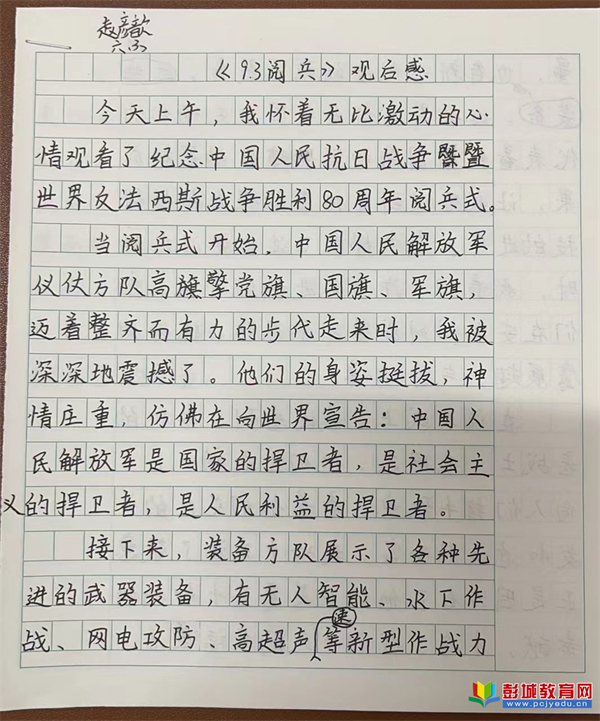 赵彦歆
六(3)
《9.3阅兵》观后感
今天上午，我怀着无比激动的心
情观看了纪念中国人民抗日战争暨
世界反法西斯战争胜利80周年阅兵式。
当阅兵式开始，中国人民解放军
仪仗方队高旗擎党旗、国旗、军旗，
迈着整齐而有力的步代走来时，我被
深深地震撼了。他们的身姿挺拔，神
情庄重，仿佛在向世界宣告：中国人
民解放军是国家的捍卫者，是社会主
义的捍卫者，是人民利益的捍卫者。
接下来，装备方队展示了各种先
进的武器装备，有无人智能、水下作
战、网电攻防、高超声速等新型作战力
彭城教育网
www.pcjyedu.cn